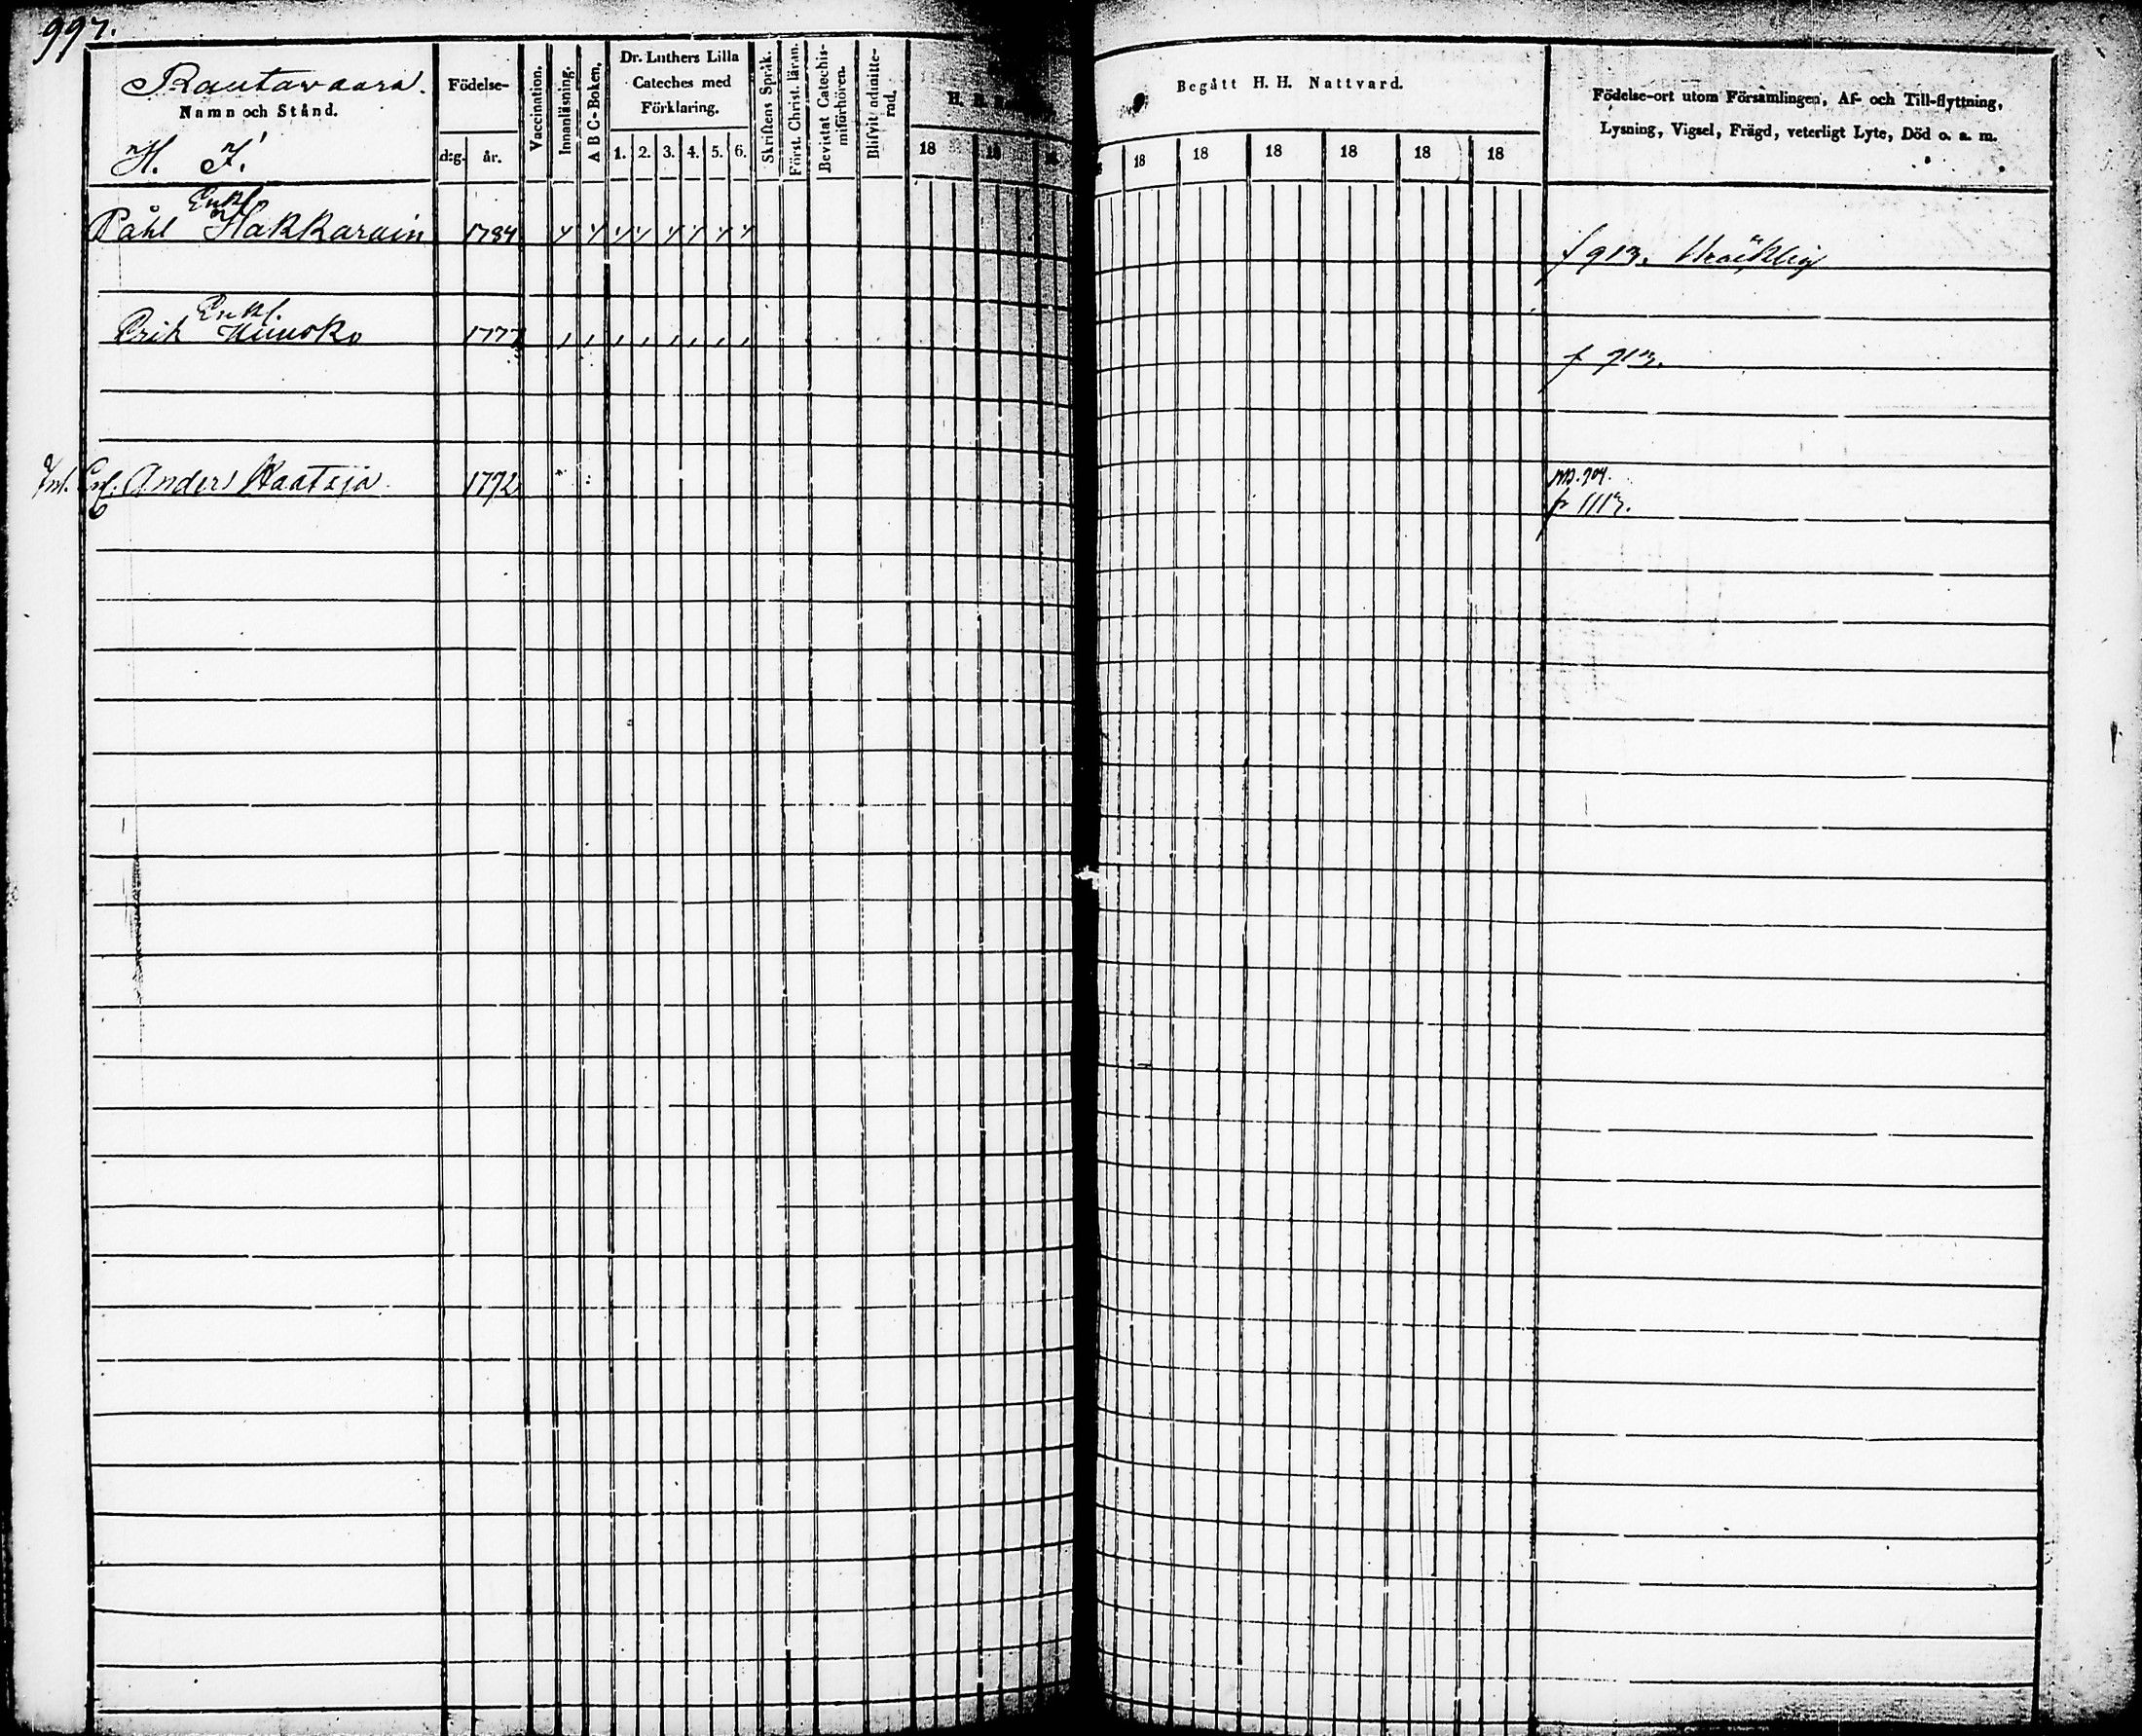 997.
Rautavaara.
Namn och Stånd.
H. F.
Födelse-
dag. år.
Vaccination.
Innanläsning.
A B C-Boken.
Dr. Luthers Lilla
Cateches med
Förklaring.
1. 2. 3. 4. 5. 6.
Skriftens Språk.
Först. Christ. läran.
Bevistat Catechis-
miförhören.
Blifvit admitte-
rad.
H. H.
18 18
Begått H. H. Nattvard.
18 18 18 18 18 18
Födelse-ort utom Församlingen, Af- och Till-flyttning,
Lysning, Vigsel, Frägd, veterligt Lyte, Död o. a. m.
Enkl.
Påhl Hakkarain 1784
f 913.
Enkl.
Erik 1777
f 913.
Inh. Anders 1792
p 1113.